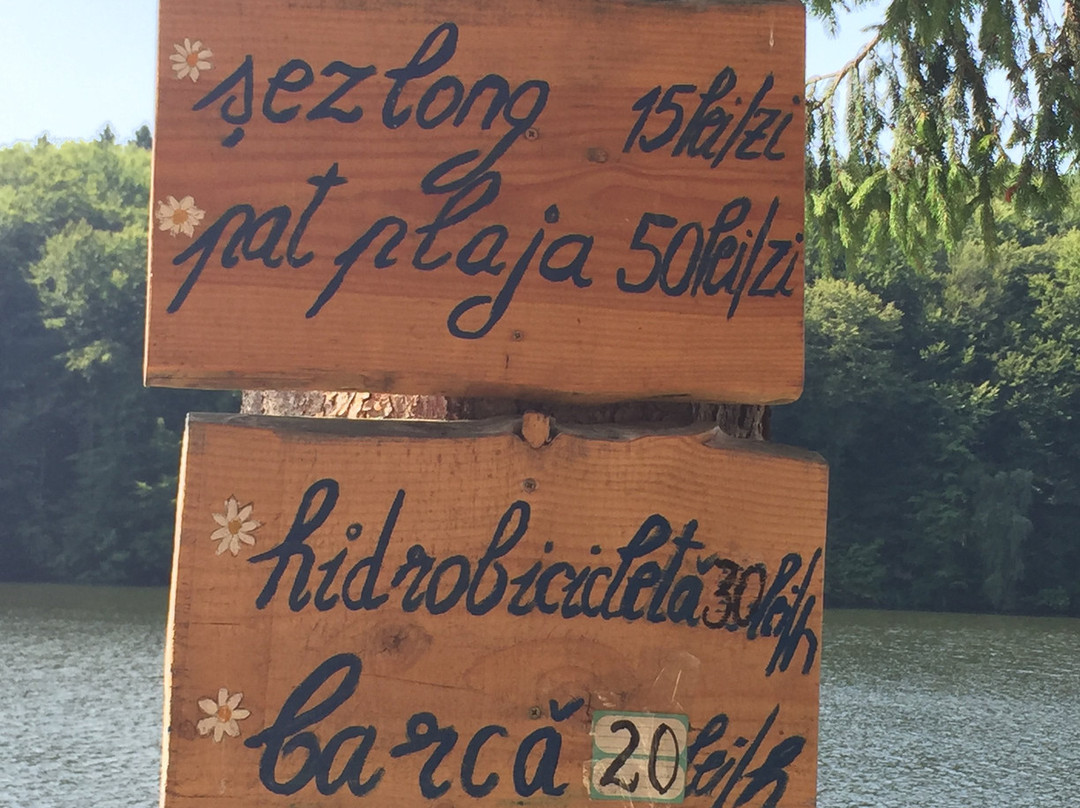 șezlong 15lei/zi
pat plaja 50lei/zi
hidrobicicletă 30lei/h
barcă 20lei/h